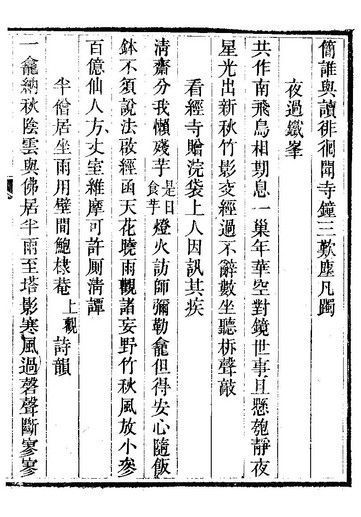 簡誰與讀徘徊聞寺鐘三歎塵凡躅
夜過鐵峯
共作南飛鳥相期息一巢年華空對鏡世事且懸匏靜夜
星光出新秋竹影交經過不辭數坐聽柝聲敲
看經寺贈浣袋上人因訊其疾
清齋分我懶殘芋是日食芋燈火訪師彌勒龕但得安心隨飯
鉢不須說法啟經函天花曉雨觀諸妄野竹秋風放小參
百億仙人方丈室維摩可許厠清譚
半僧居坐雨用壁間鮑棣菴上觀詩韻
一龕納秋陰雲與佛居半雨至塔影寒風過磬聲斷寥寥